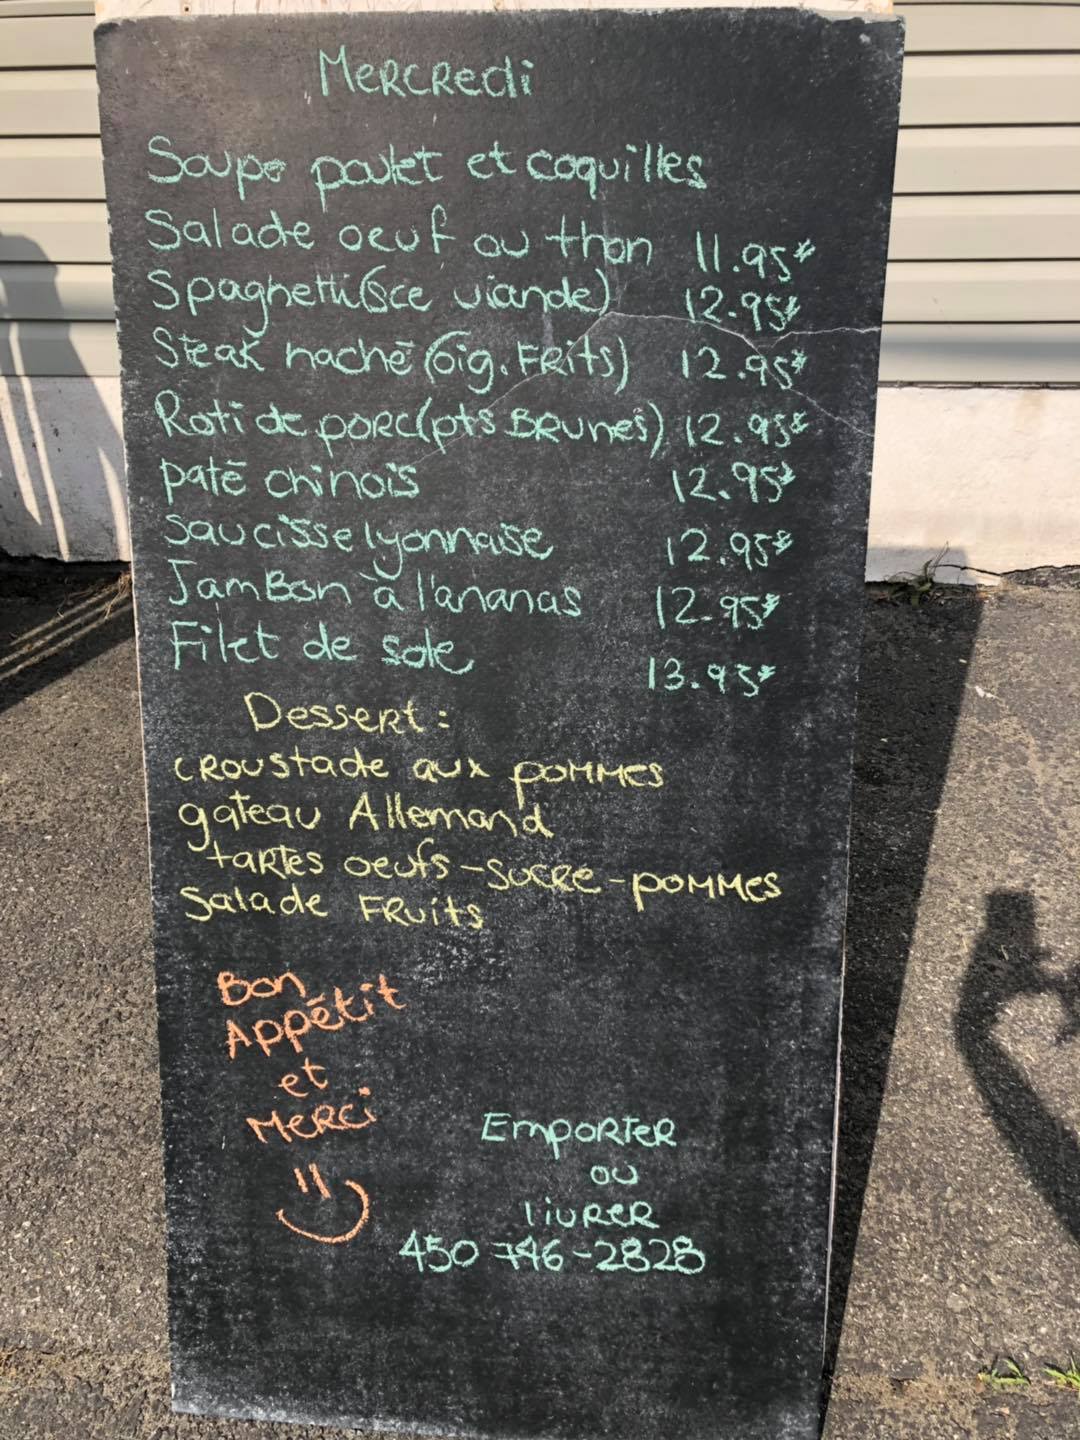 Mercredi
Soupe poulet et coquilles
Salade oeuf ou thon 11.95$
Spaghetti (sce viande) 12.95$
Steak haché (oig. Frits) 12.95$
Roti de porc (pts Brunes) 12.95$
paté chinois 12.95$
saucisse lyonnaise 12.95$
Jambon à l'ananas 12.95$
Filet de sole 13.95$
Dessert :
croustade aux pommes
gateau Allemand
tartes oeufs - sucre - pommes
Salade Fruits
Bon
Appétit
et
Merci
Emporter
ou
livrer
450 746-2828